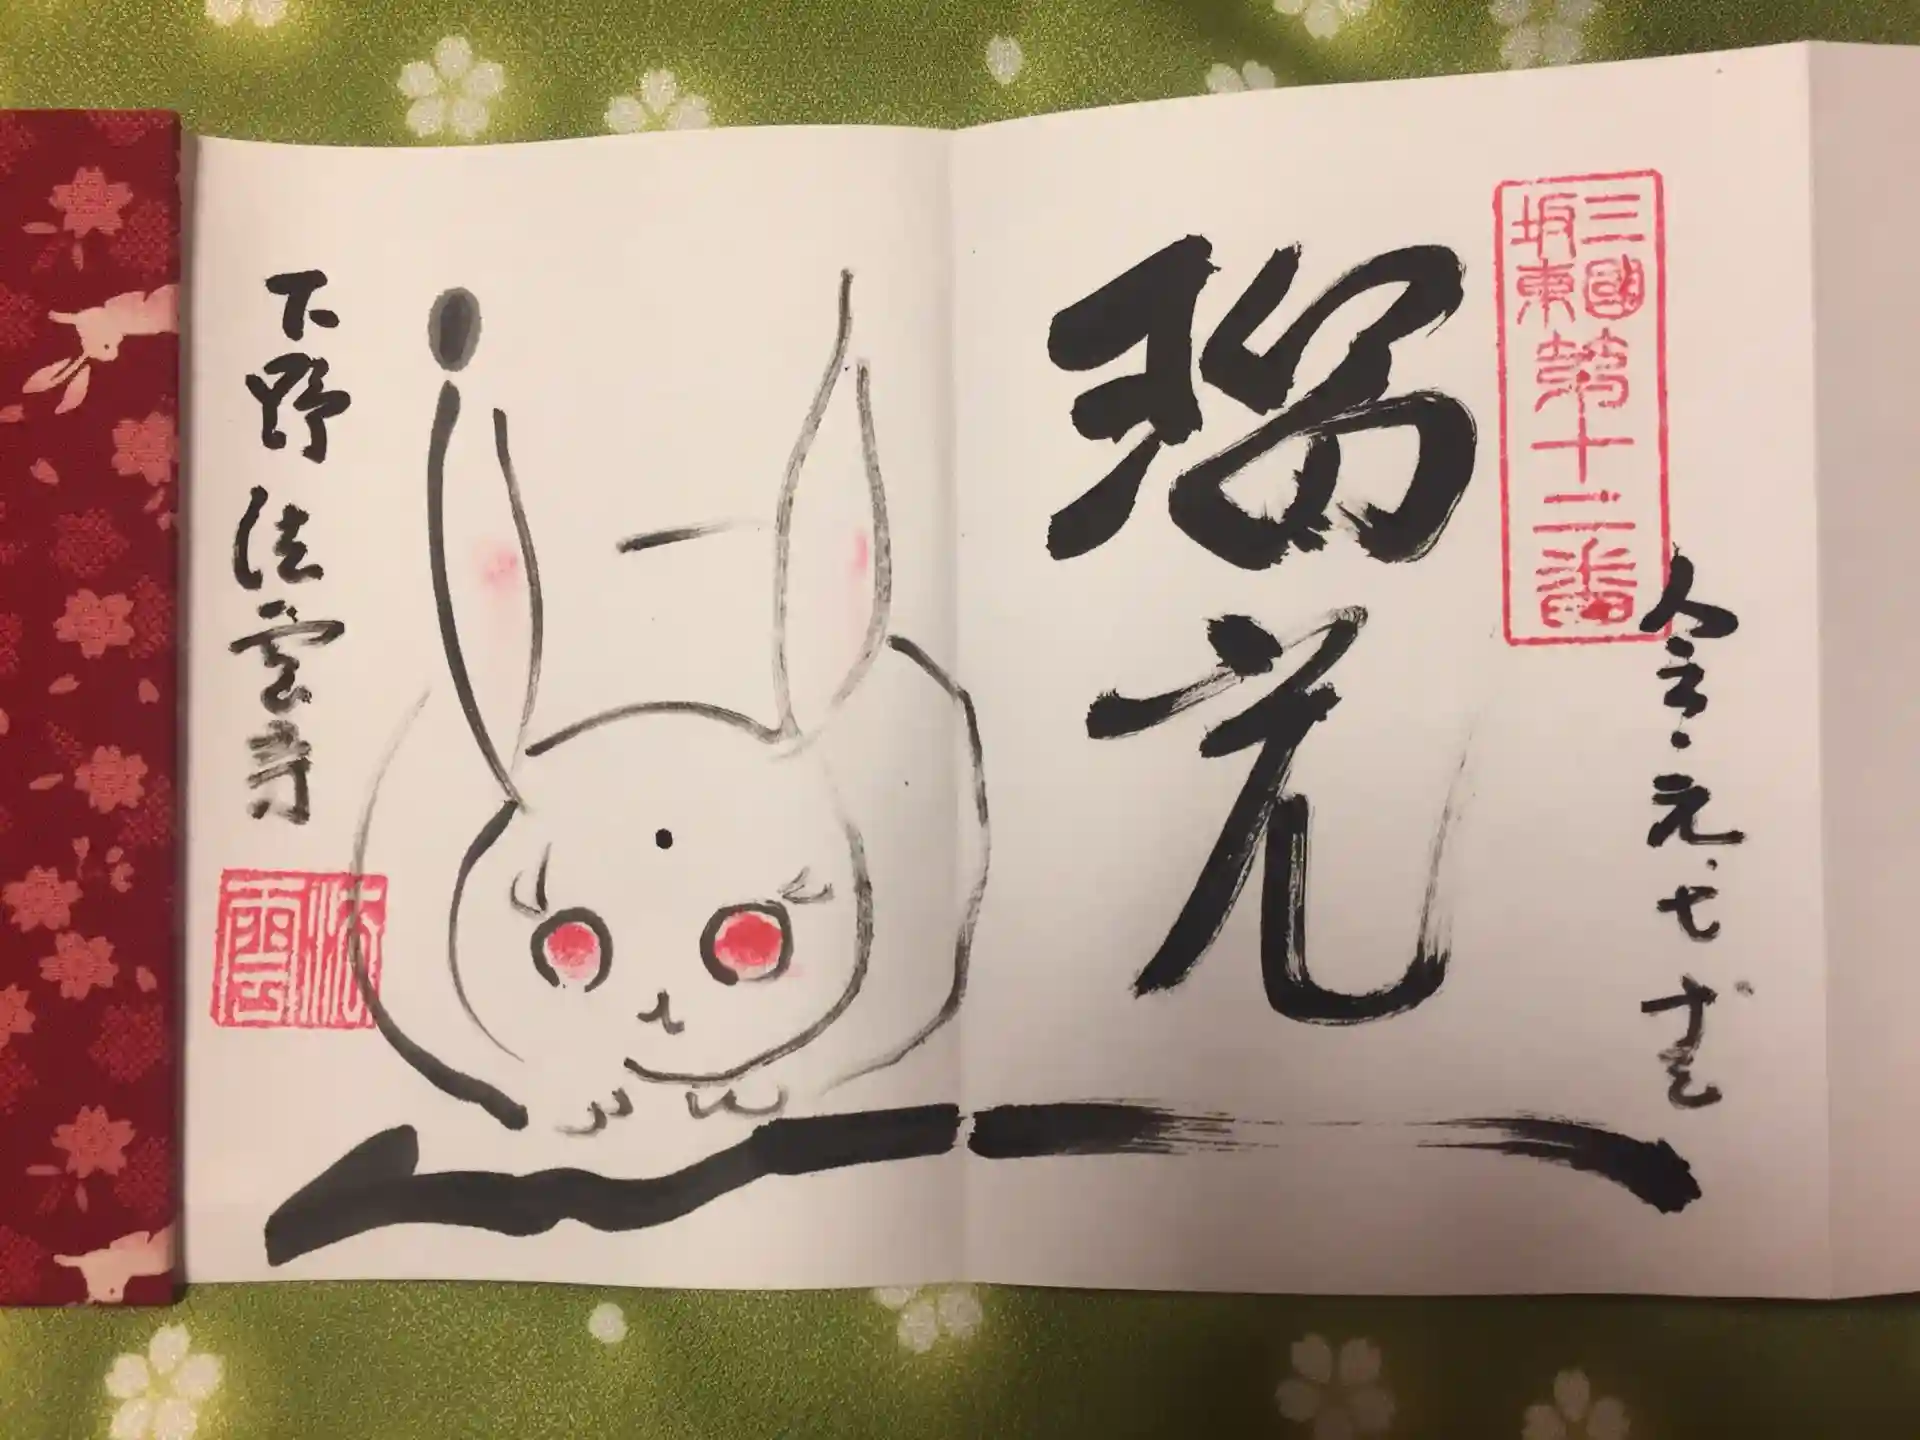 三國
坂東
第十二番
令・元・七・十
瑠光
下野 法雲寺
法雲